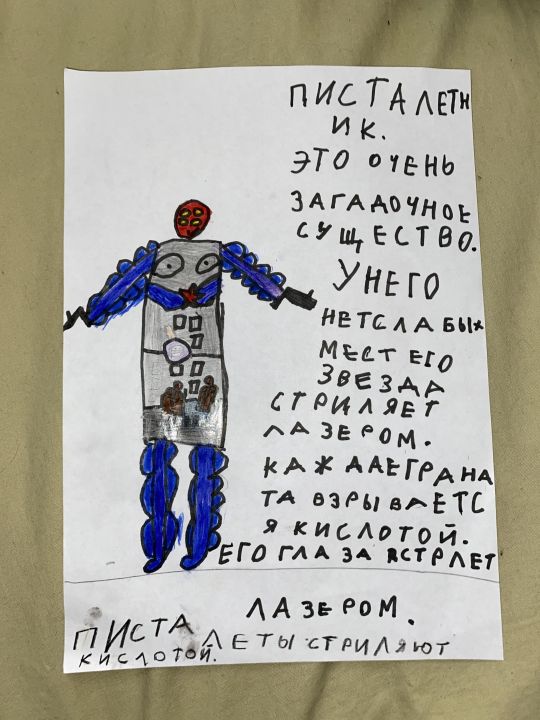 ПИСТАЛЕТН
ИК.
ЭТО ОЧЕНЬ
ЗАГАДОЧНОЕ
СУЩЕСТВО.
У НЕГО
НЕТ СЛАБЫХ
МЕСТ ЕГО
ЗВЕЗДА
СТРИЛЯЕТ
ЛАЗЕРОМ.
КАЖДАЕ ГРАНА
ТА ВЗРЫВАЕТС
Я КИСЛОТОЙ.
ЕГО ГЛАЗА ЯСТРЛЕТ
ЛАЗЕРОМ.
ПИСТАЛЕТЫ СТРИЛЯЮТ
КИСЛОТОЙ.